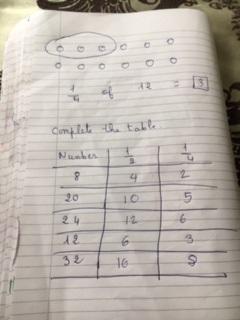 1/4 of 12 = 3
Complete the table.
Number 1/2 1/4
8 4 2
20 10 5
24 12 6
12 6 3
32 16